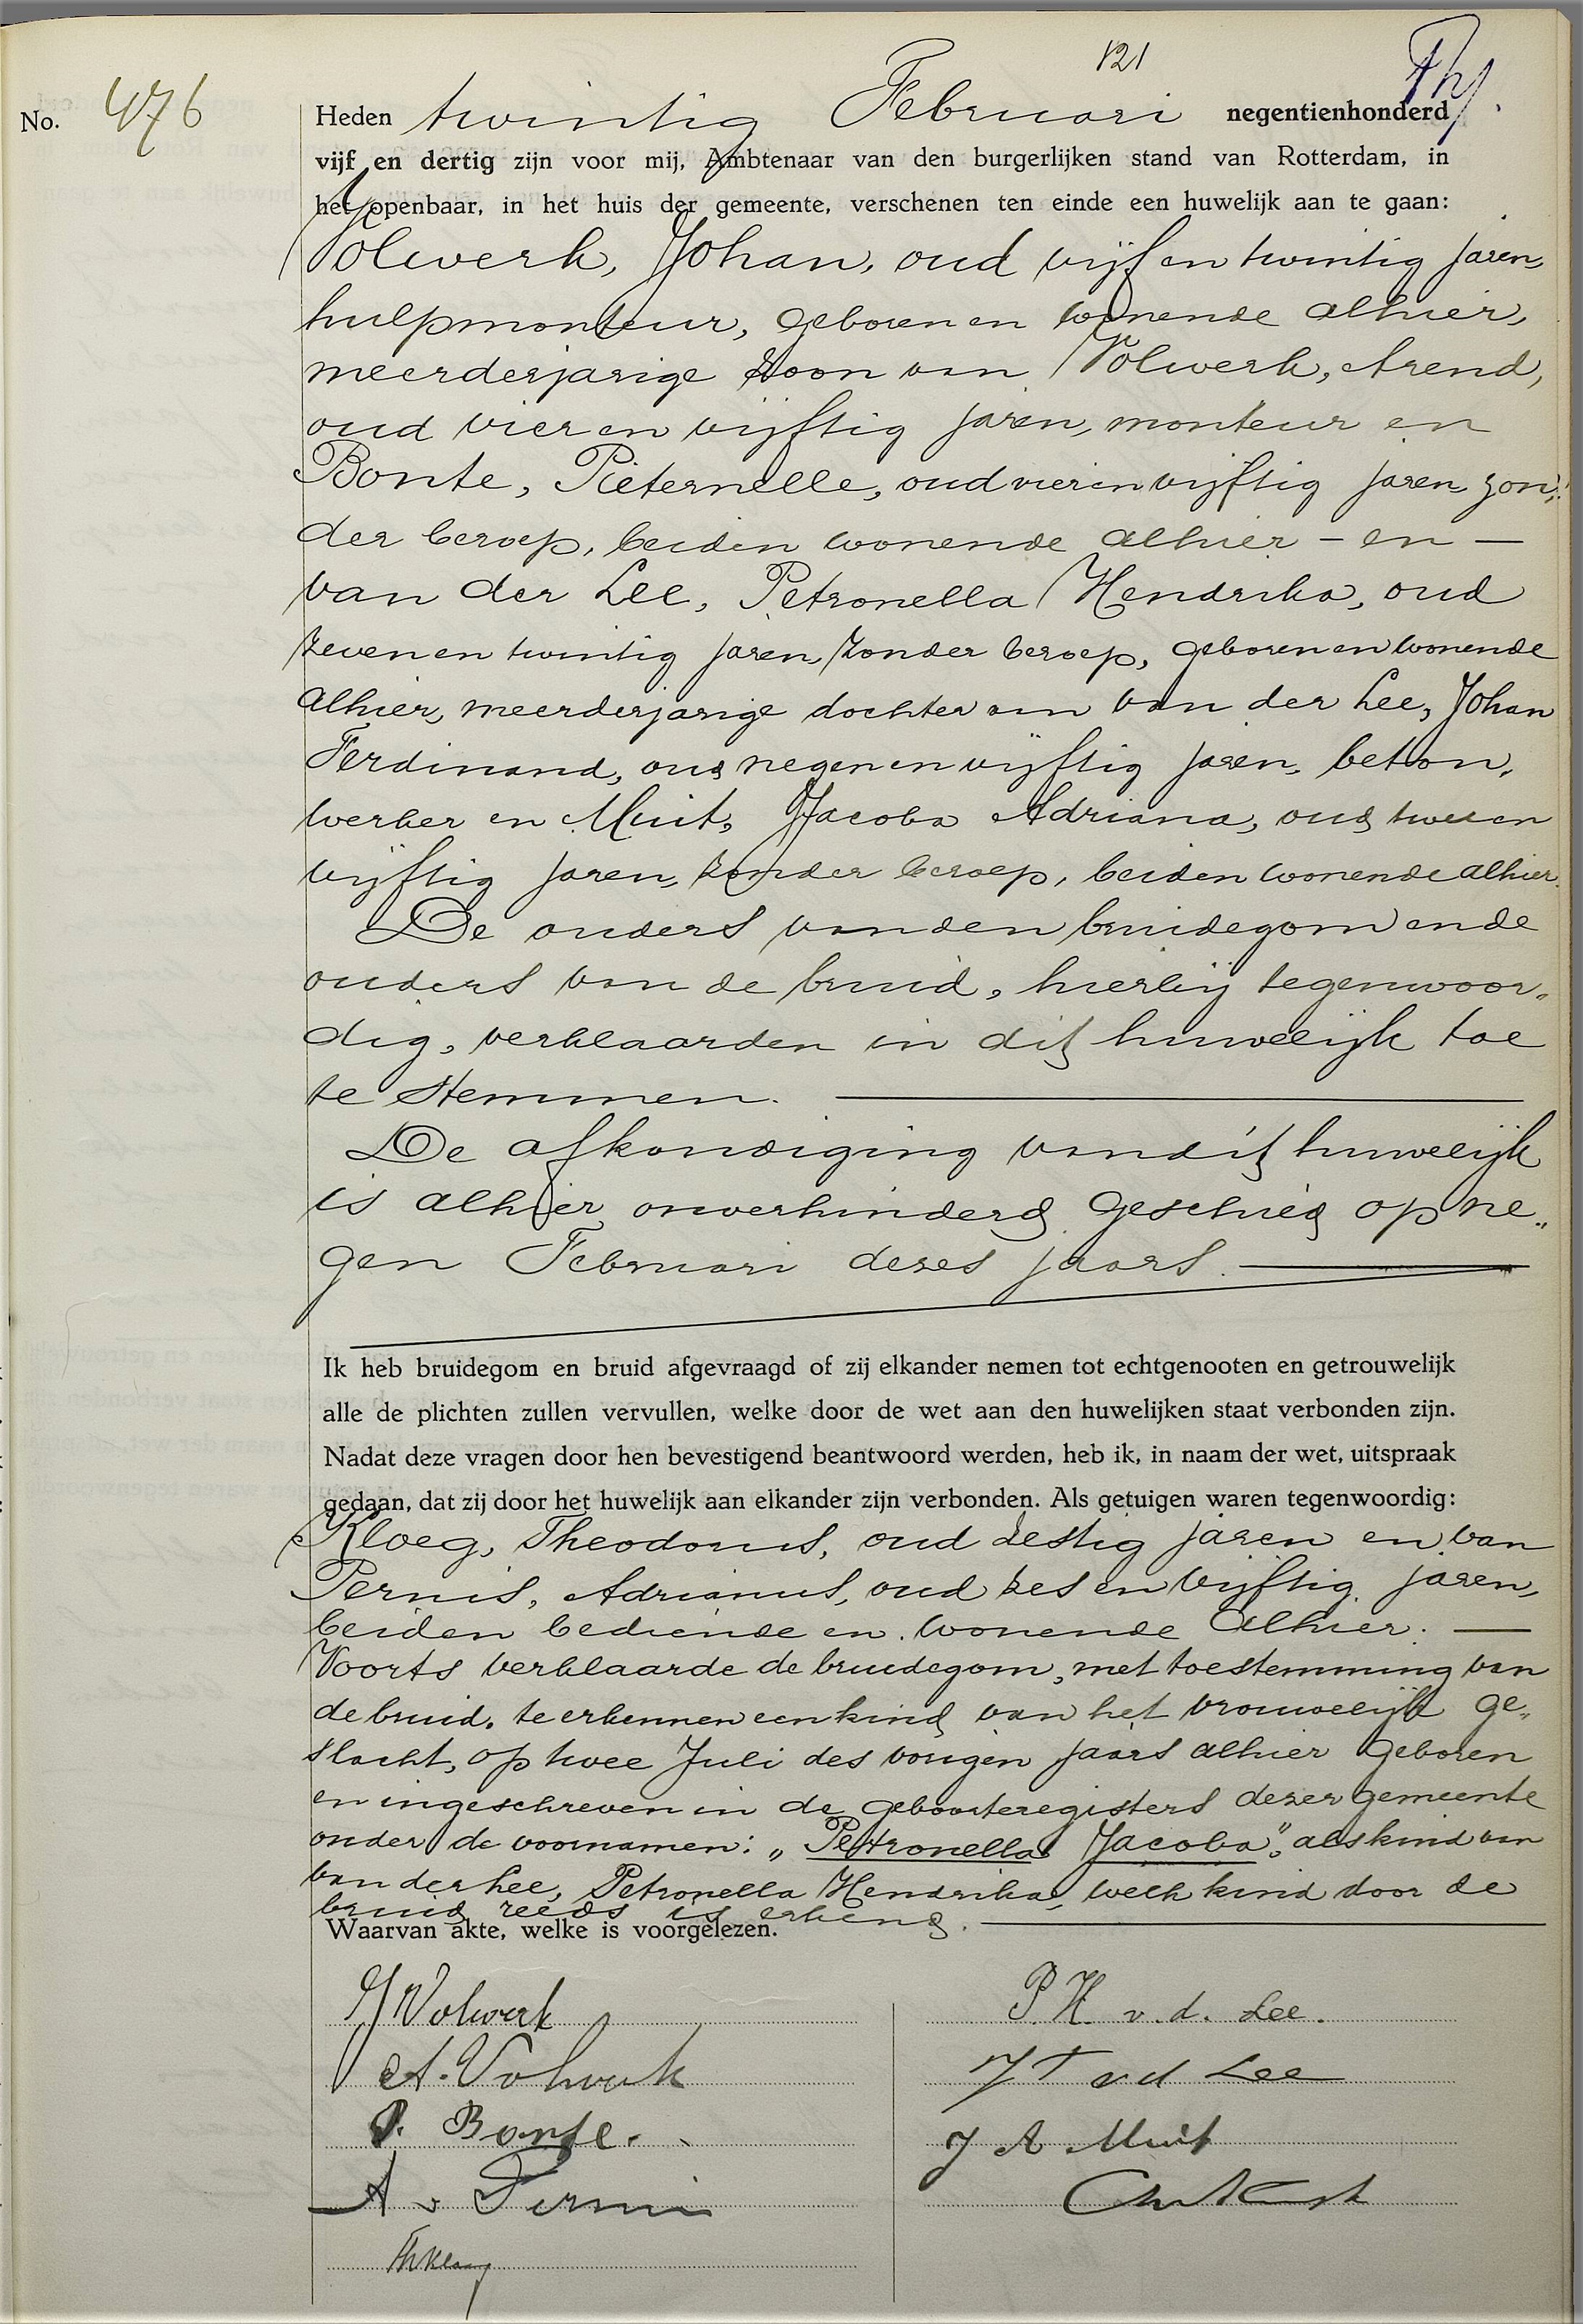 121
No. 476
Heden twintig Februari negentienhonderd
vijf en dertig zijn voor mij, Ambtenaar van den burgerlijken stand van Rotterdam, in
het openbaar, in het huis der gemeente, verschenen ten einde een huwelijk aan te gaan:
Volwerk, Johan, oud vijf en twintig jaren,
hulpmonteur, geboren en wonende alhier,
meerderjarige zoon van Volwerk, Arend,
oud vier en vijftig jaren, monteur en
Bonte, Pieternelle, oud vier en vijftig jaren, zon„
der beroep, beiden wonende alhier – en –
van der Lee, Petronella Hendrika, oud
zeven en twintig jaren, zonder beroep, geboren en wonende
alhier, meerderjarige dochter van van der Lee, Johan
Ferdinand, oud negen en vijftig jaren, beton„
werker en Muit, Jacoba Adriana, oud twee en
vijftig jaren, zonder beroep, beiden wonende alhier.
De ouders van den bruidegom en de
ouders van de bruid, hierbij tegenwoor„
dig, verklaarden in dit huwelijk toe
te stemmen.
De afkondiging van dit huwelijk
is alhier onverhinderd geschied op ne„
gen Februari dezes jaars.
Ik heb bruidegom en bruid afgevraagd of zij elkander nemen tot echtgenooten en getrouwelijk
alle de plichten zullen vervullen, welke door de wet aan den huwelijken staat verbonden zijn.
Nadat deze vragen door hen bevestigend beantwoord werden, heb ik, in naam der wet, uitspraak
gedaan, dat zij door het huwelijk aan elkander zijn verbonden. Als getuigen waren tegenwoordig:
Kloeg, Theodorus, oud zestig jaren en van
Pernis, Adrianus, oud zes en vijftig jaren,
beiden bediende en wonende alhier.
Voorts verklaarde de bruidegom, met toestemming van
de bruid, te erkennen een kind van het vrouwelijk ge„
slacht, op twee Juli des vorigen jaars alhier geboren
en ingeschreven in de geboorteregisters dezer gemeente
onder de voornamen: „Petronella Jacoba", als kind van
van der Lee, Petronella Hendrika, welk kind door de
bruid reeds is erkend.
Waarvan akte, welke is voorgelezen.
J Volwerk
P. H. v. d. Lee.
A. Volwerk
J F v d Lee
P. Bonte.
J A Muit
A v Pernis
Th Kloeg